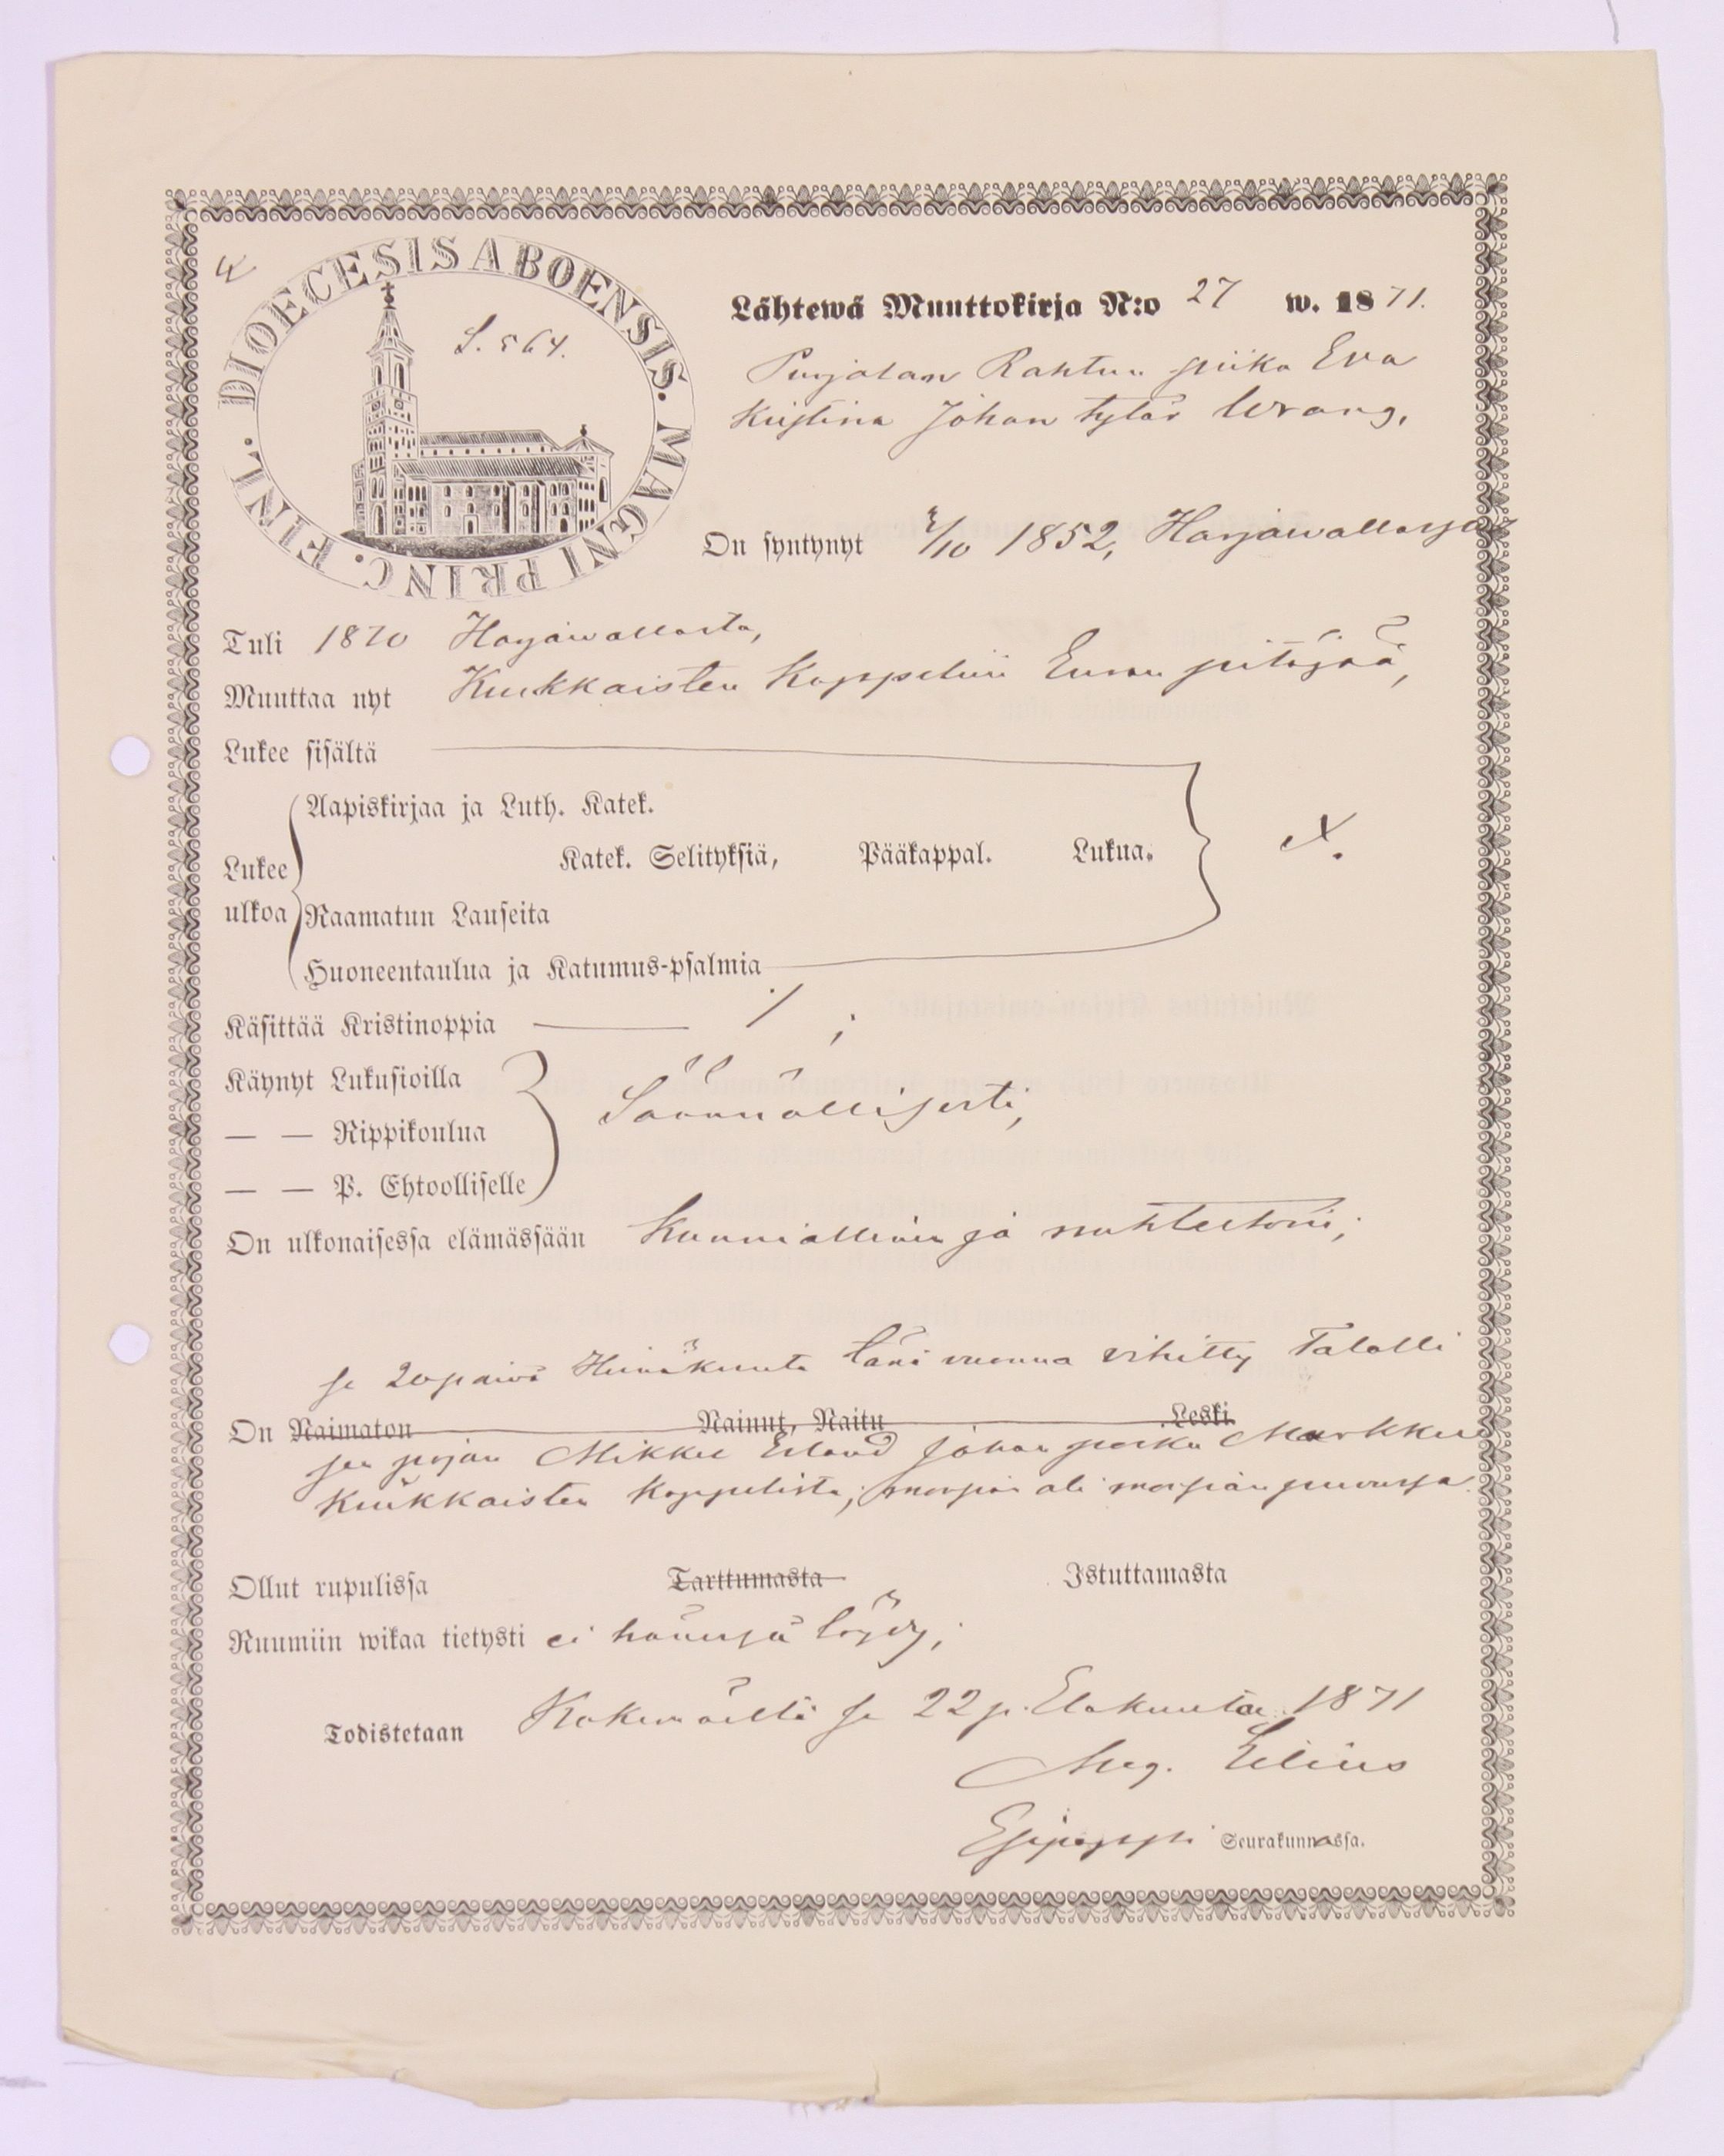 DIOECESIS ABOENSIS. MAGNI PRINC. FINL.
S. 564.
Lähtewä Muuttokirja N:o 27 w. 1871.
Purjalan Rahtun piika Eva
Kristina Johan tytär Wrang,
On syntynyt /10 1852, Harjawallassa
Tuli 1870 Harjawallasta,
Muuttaa nyt Kiukkaisten Kappeliin Euran pitäjää,
Lukee sisältä
Aapiskirjaa ja Luth. Katek.
Lukee Katek. Selityksiä, Pääkappal. Lukua.
ulkoa Raamatun Lauseita
Huoneentaulua ja Katumus-psalmia
Käsittää Kristinoppia
Käynyt Lukusioilla
— — Rippikoulua Säännöllisesti,
— — P. Ehtoolliselle
On ulkonaisessa elämässään kunniallinen ja nuhteetoin;
se 20 päivä Heinäkuuta tänä vuonna vihitty Talolli
On Naimaton Nainut, Naitu Leski
sen pojan Mikkel Erland Johan pojan Markku
Kiukkaisten Kappelista; morsian oli morsian puvussa.
Ollut rupulissa Tarttumasta Istuttamasta
Ruumiin wikaa tietysti ei hänessä löydy;
Todistetaan Kokemäellä se 22 p. Elokuuta 1871
Aug. Eilius
Esipappi Seurakunnassa.